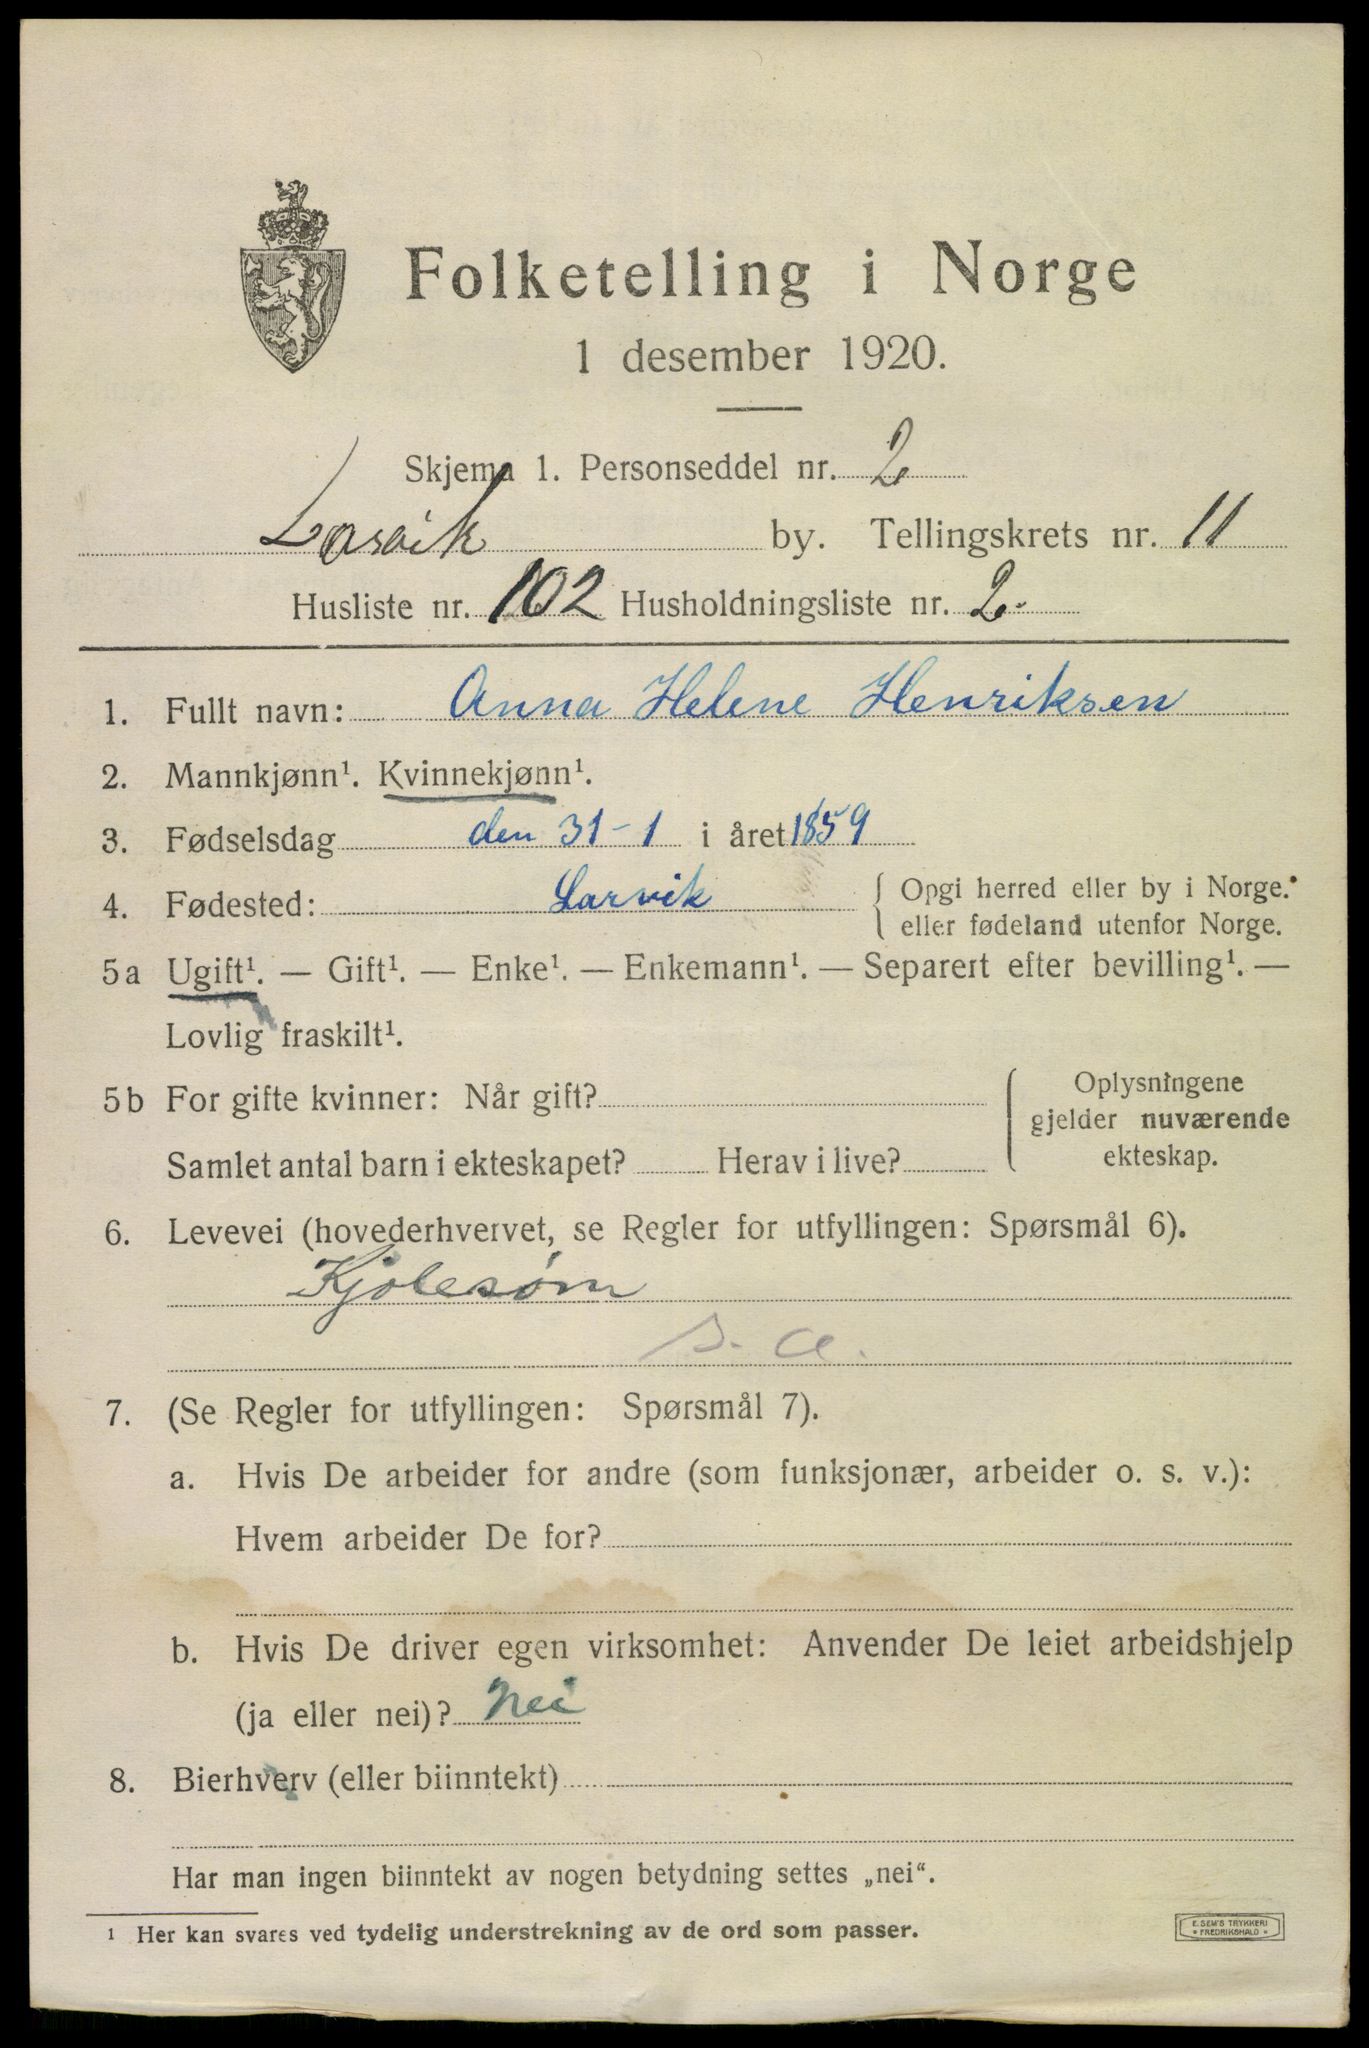 Folketelling i Norge
1 desember 1920.
Skjema 1. Personseddel nr. 2
Larvik by. Tellingskrets nr. 11
Husliste nr. 102 Husholdningsliste nr. 2.
1. Fullt navn: Anna Helene Henriksen
2. Mannkjønn¹. Kvinnekjønn¹.
3. Fødselsdag den 31-1 i året 1859
4. Fødested: Larvik { Opgi herred eller by i Norge.
eller fødeland utenfor Norge.
5a Ugift¹. — Gift¹. — Enke¹. — Enkemann¹. — Separert efter bevilling¹. —
Lovlig fraskilt¹.
5b For gifte kvinner: Når gift? { Oplysningene
gjelder nuværende
Samlet antal barn i ekteskapet? Herav i live? ekteskap.
6. Levevei (hovederhvervet, se Regler for utfyllingen: Spørsmål 6).
Kjolesøm
s. a.
7. (Se Regler for utfyllingen: Spørsmål 7).
a. Hvis De arbeider for andre (som funksjonær, arbeider o. s. v.):
Hvem arbeider De for?
b. Hvis De driver egen virksomhet: Anvender De leiet arbeidshjelp
(ja eller nei)? Nei
8. Bierhverv (eller biinntekt)
Har man ingen biinntekt av nogen betydning settes „nei“.
¹ Her kan svares ved tydelig understrekning av de ord som passer.
E. SEM'S TRYKKERI
* FREDRIKSHALD *